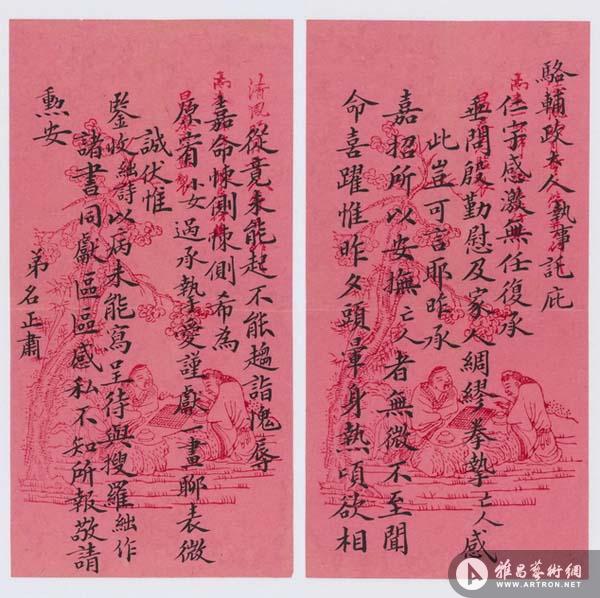 駱輔政大人執事託庇
仁宇感激無任復承
垂問殷勤慰及家人綢繆拳摯亡人感
此豈可言耶昨承
嘉招所以安撫亡人者無微不至聞
命喜躍惟昨夕頭暈身熱頃欲相
從竟未能起不能趨詣愧辱
嘉命悚惻悚惻希為
原宥小女過承摯愛謹獻一畫聊表微
誠伏惟
鑒收拙詩以病未能寫呈待與搜羅拙作
諸書同獻區區感私不知所報敬請
勲安
弟名正肅
清風
高
雅昌藝術網
WWW.ARTRON.NET